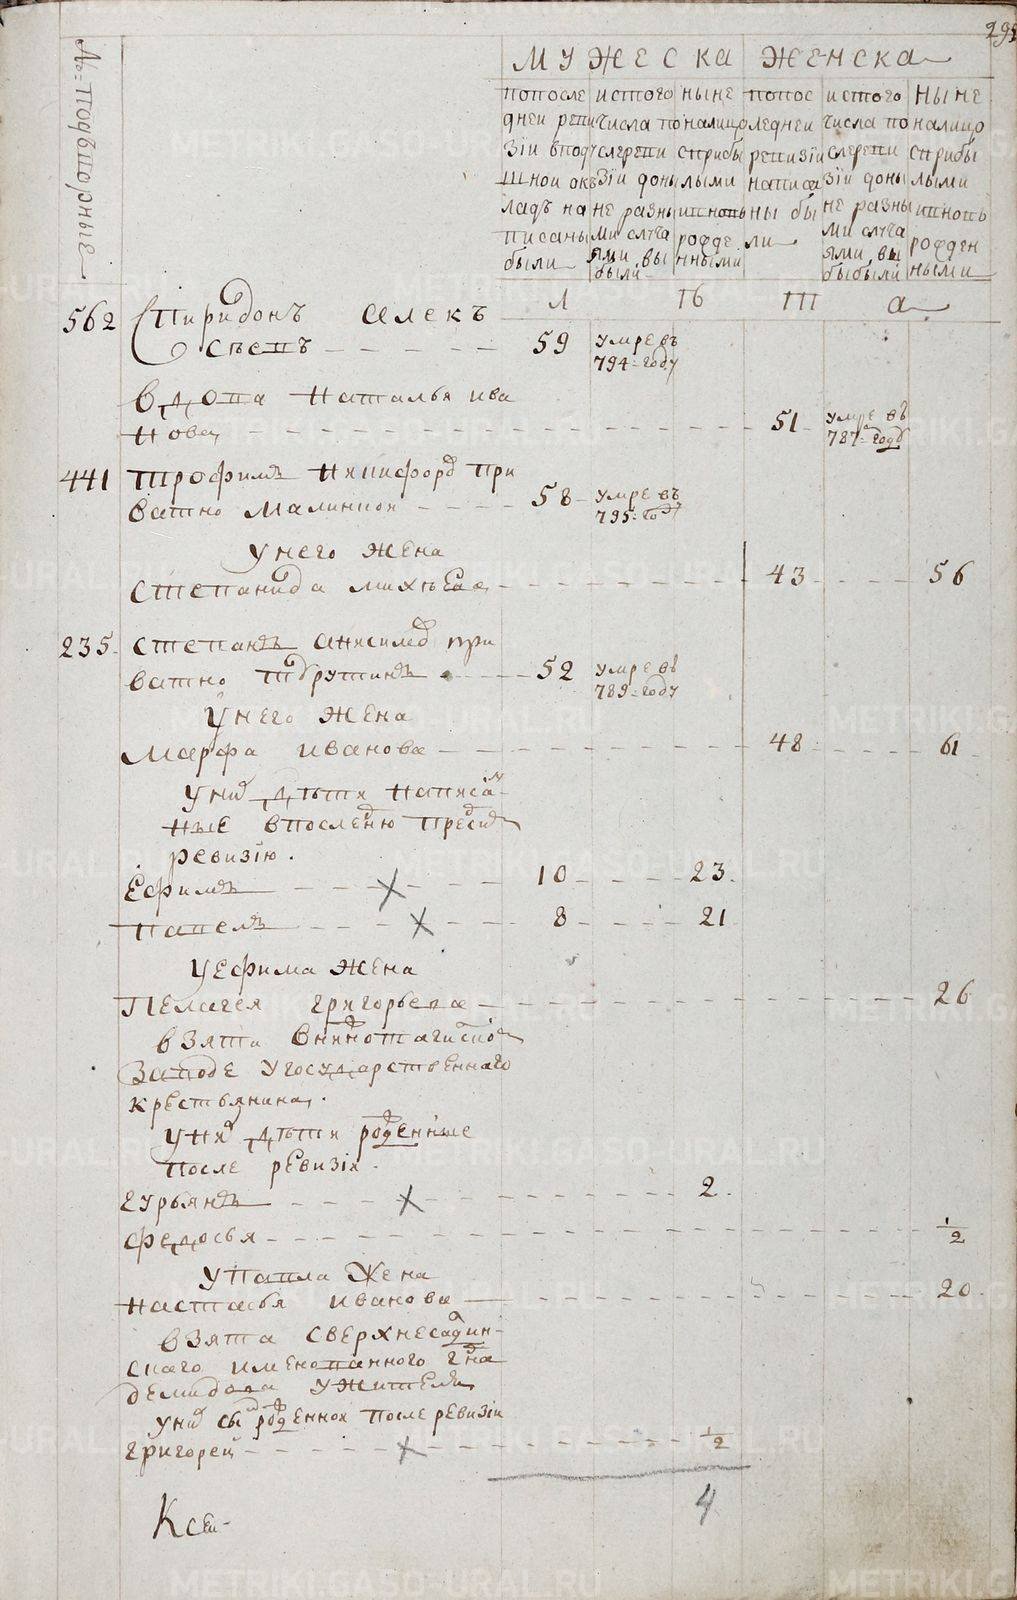 № подворные
МУЖЕСКА ЖЕНСКА
попосле
дней реви
зіи вподу
шной ок
ладъ на
писаны
были
истого
числа по
слереви
зіи доны
не разны
ми случа
ями вы
были
ныне
налицо
сприбы
лыми
ивновь
рожде
нными
попос
ледней
ревизіи
написа
ны бы
ли
истого
числа по
слереви
зіи доны
не разны
ми случа
ями вы
были
ныне
налицо
сприбы
лыми
ивновь
рожден
ными
Л ѣ т а
562 Спиридонъ Алек
сѣевъ 59 умре въ
794 году
вдова Наталья ива
нова 51 умре въ
787 году
441 Трофимъ Никифоровъ при
ватно Малинкой 58 умре въ
795 году
Унего жена
Степанида михѣева 43 56
235 Степанъ анисимовъ при
ватно 52 умре въ
789 году
Унего жена
Марфа иванова 48 61
Уних дѣти написа
ные впоследнюю пред сию
ревизію.
Ефимъ 10 23
Павелъ 8 21
Уефима жена
Пелагея григорьева 26
взята внижнотагилском
заводе угосударственнаго
крестьянина.
Уних дѣти рожденные
после ревизіи.
Гурьянъ 2
Федосья 1/2
Упавла жена
Настасья иванова 20
взята сверхнесалдин
скаго именованного гдна
демидова ужителя
Уних сынъ рожденной после ревизіи
григорей 1/2
4